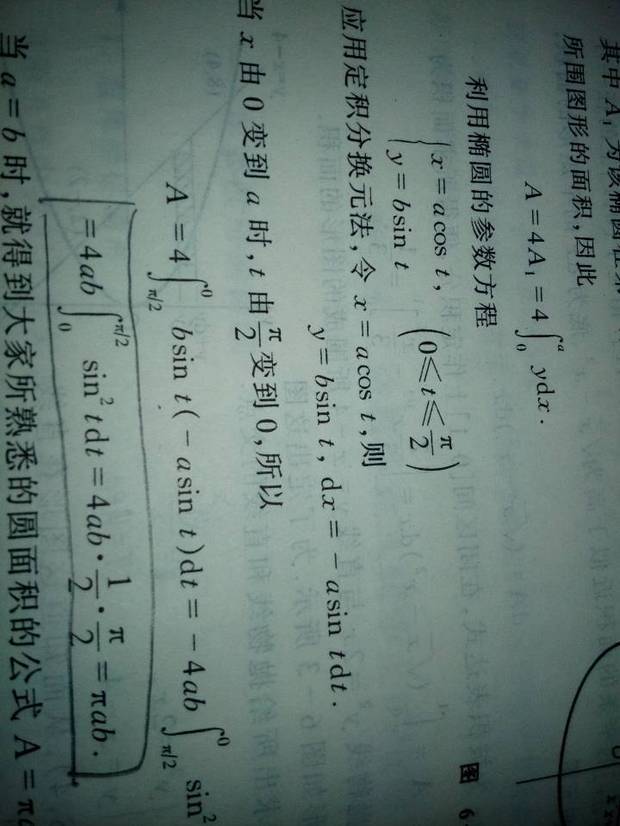 其中 A₁ 为该椭圆在第
所围图形的面积,因此
A = 4A₁ = 4∫₀ᵃ ydx.
利用椭圆的参数方程
{ x = a cos t,
y = b sin t (0 ≤ t ≤ π/2)
应用定积分换元法,令 x = a cos t,则
y = b sin t, dx = − a sin tdt.
当 x 由 0 变到 a 时,t 由 π/2 变到 0,所以
A = 4∫_{π/2}^{0} b sin t(− a sin t)dt = − 4ab∫_{π/2}^{0} sin²
= 4ab∫_{0}^{π/2} sin² tdt = 4ab · 1/2 · π/2 = πab.
当 a = b 时,就得到大家所熟悉的圆面积的公式 A = π
图 6